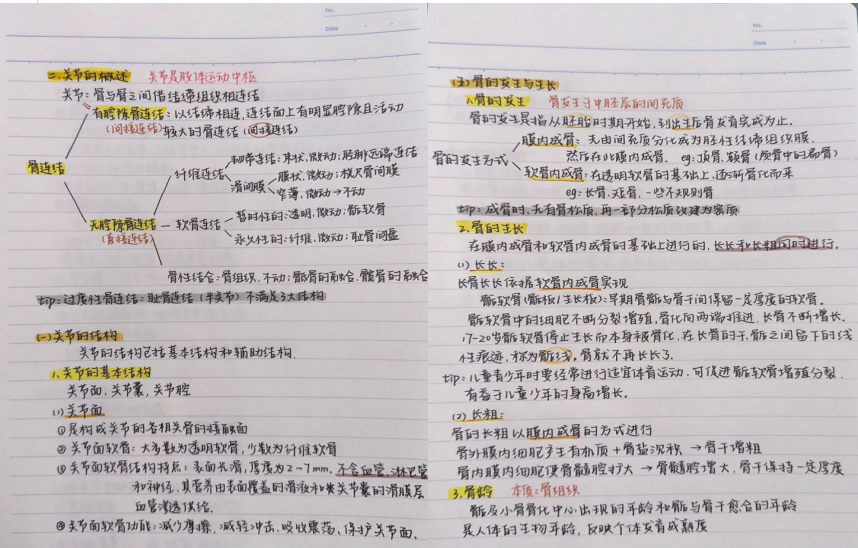 No.
Date
二、关节的概述 关节是肢体运动中枢
关节：骨与骨之间借结缔组织相连结
有腔隙骨连结：以结缔相连，连结面上有明显腔隙且活动
(间接连结) 较大的骨连结 (间接连结)
骨连结
纤维连结
韧带连结：束状，微动；胫腓远端连结
骨间膜
膜状，微动；桡尺骨间膜
窄薄，微动→不动
无腔隙骨连结
(直接连结)
软骨连结
暂时性的：透明，微动；骺软骨
永久性的：纤维，微动；耻骨间盘
骨性结合：骨组织，不动；骶骨的融合，髋骨的融合
tip：过度性骨连结：耻骨连结（半关节）不满足3大结构
(一) 关节的结构
关节的结构包括基本结构和辅助结构.
1、关节的基本结构
关节面、关节囊、关节腔
(1) 关节面
①是构成关节的各相关骨的接触面
②关节面软骨：大多数为透明软骨，少数为纤维软骨
③关节面软骨结构特点：表面光滑，厚度为2~7mm，不含血管、淋巴管
和神经，其营养由表面覆盖的滑液和关节囊的滑膜层
血管渗透供给.
④关节面软骨功能：减少摩擦，减轻冲击，吸收震荡、保护关节面.
No.
Date
(五) 骨的发生与生长
1、骨的发生 骨发生于中胚层的间充质
骨的发生是指从胚胎时期开始，到出生后骨发育完成为止.
骨的发生方式
膜内成骨：先由间充质分化成为胚性结缔组织膜.
然后在此膜内成骨. eg：顶骨，颏骨 (质骨中的扁骨)
软骨内成骨：在透明软骨的基础上，逐渐骨化而来
eg：长骨、短骨、一些不规则骨
tip：成骨时，先有骨松质，再一部分松质改建为密质
2. 骨的生长
在膜内成骨和软骨内成骨的基础上进行的，长长和长粗同时进行.
(1) 长长：
长骨长长依据软骨内成骨实现
骺软骨 (骺板/生长板)：早期骨骺与骨干间保留一定厚度的软骨.
骺软骨中的细胞不断分裂增殖，骨化向两端推进，长骨不断增长.
17-20岁骺软骨停止生长而本身被骨化，在长骨的干、骺之间留下的线
性痕迹，称为骺线，骨就不再长长了.
tip：儿童青少年时要经常进行适宜体育运动，可促进骺软骨增殖分裂.
有益于儿童少年的身高增长.
(2) 长粗：
骨的长粗以膜内成骨的方式进行
骨外膜内细胞产生有机质+骨盐沉积→骨干增粗
骨内膜内细胞使骨髓腔扩大→骨髓腔增大，骨干保持一定厚度
3. 骨龄 本质：骨组织
骺及小骨骨化中心出现的年龄和骺与骨干愈合的年龄
是人体的生物年龄，反映个体发育成熟度